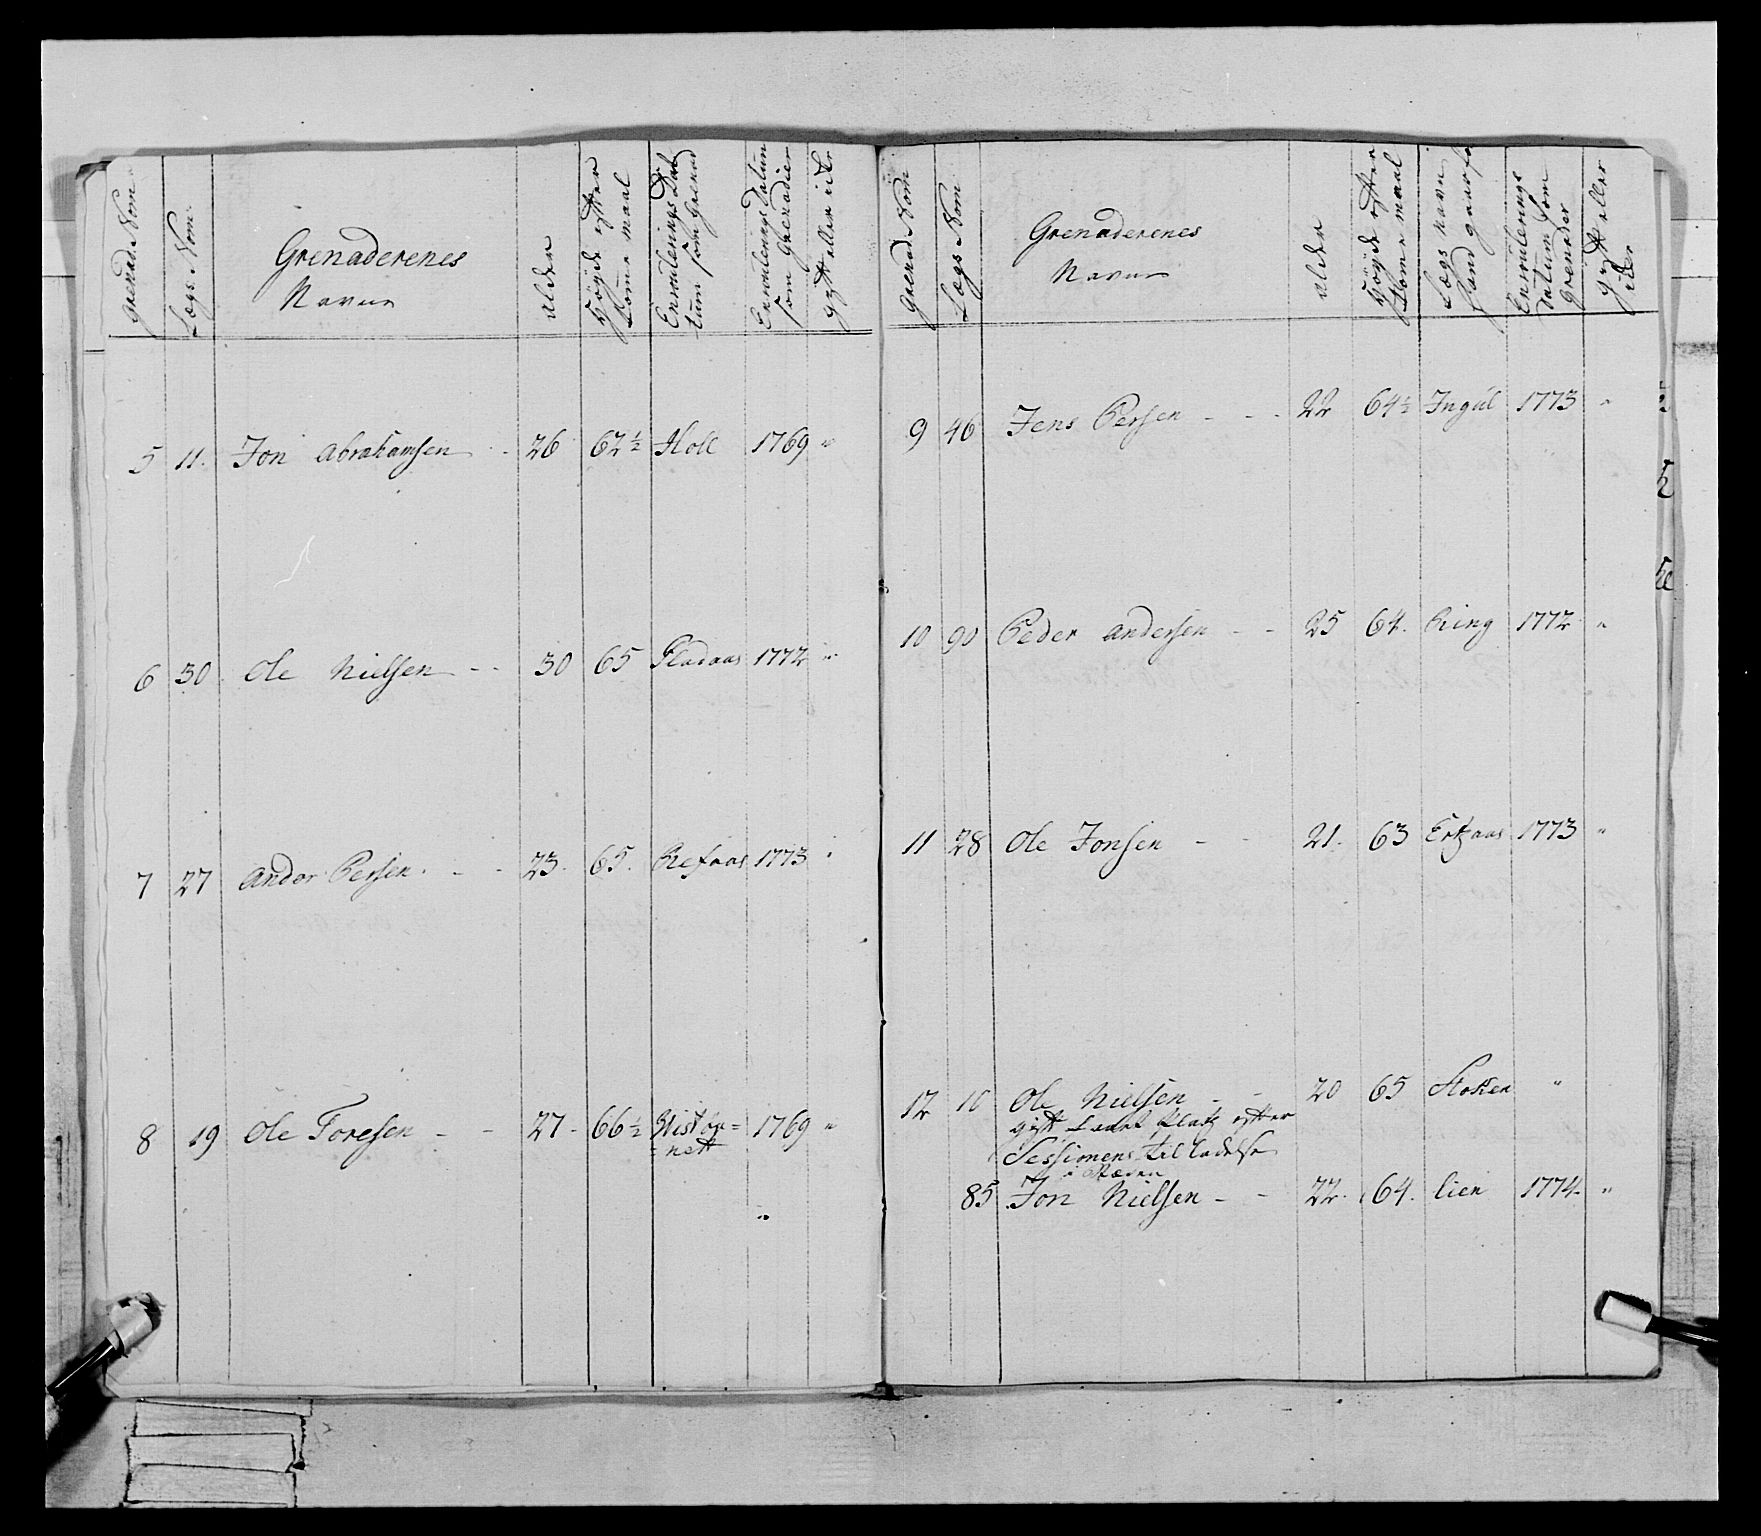 Grenad: Nom:
Lægs. Nom:
Grenaderenes
Navne
alder
Høyde efter
Tome maal
Enroulerings Da
tum som Grenad
Enroulerings Datum
som Grenadier
gift eller ikke
5 11. Jon Abrahamsen - 26 62½ Holl 1769 "
6 30 Ole Nielsen - - 30 65 Fladaas 1772 "
7 27 Ander Persen. - - 23. 65. Refsaas 1773 "
8 19 Ole Toresen - - 27- 66½ 1769 "
"
Grenad Nom
Lægs Nom
Grenaderenes
Navne
alder
Høyde efter
Tome maal
Lægs navn
hand gaar for
Enroulerings
Datum som
Grenader
gift eller
ikke
9 46 Jens Persen - - - 22 64½ Ingul 1773 "
10 90 Peder Andersen - - 25 64. Ring 1772 "
11 28 Ole Jonsen - - 21. 63 1773 "
12 10 Ole Nielsen - - 20 65 Stokken "
gift taart Platz efter
Sessionens Tilladelse
85 Jon Nielsen - - 22. 64. Lien 1774. "